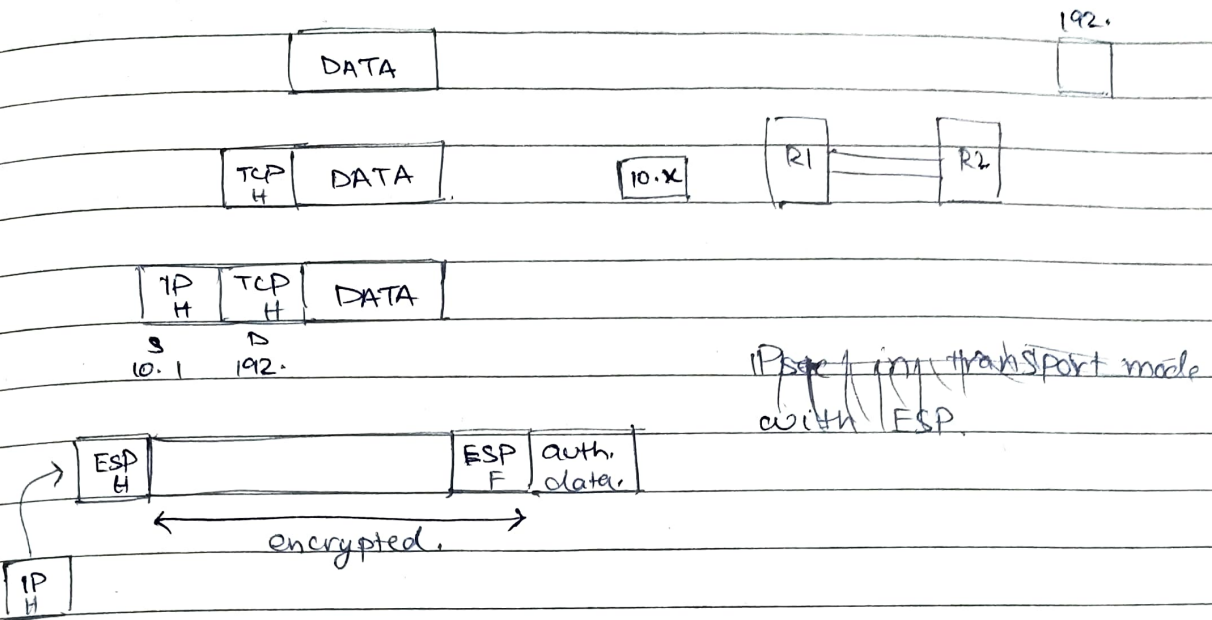 192.
DATA
TCP H DATA
10.x
R1
R2
IP H TCP H DATA
S D
10.1 192.
IPsec in transport mode
with ESP.
ESP H ESP F auth. data.
encrypted.
IP H